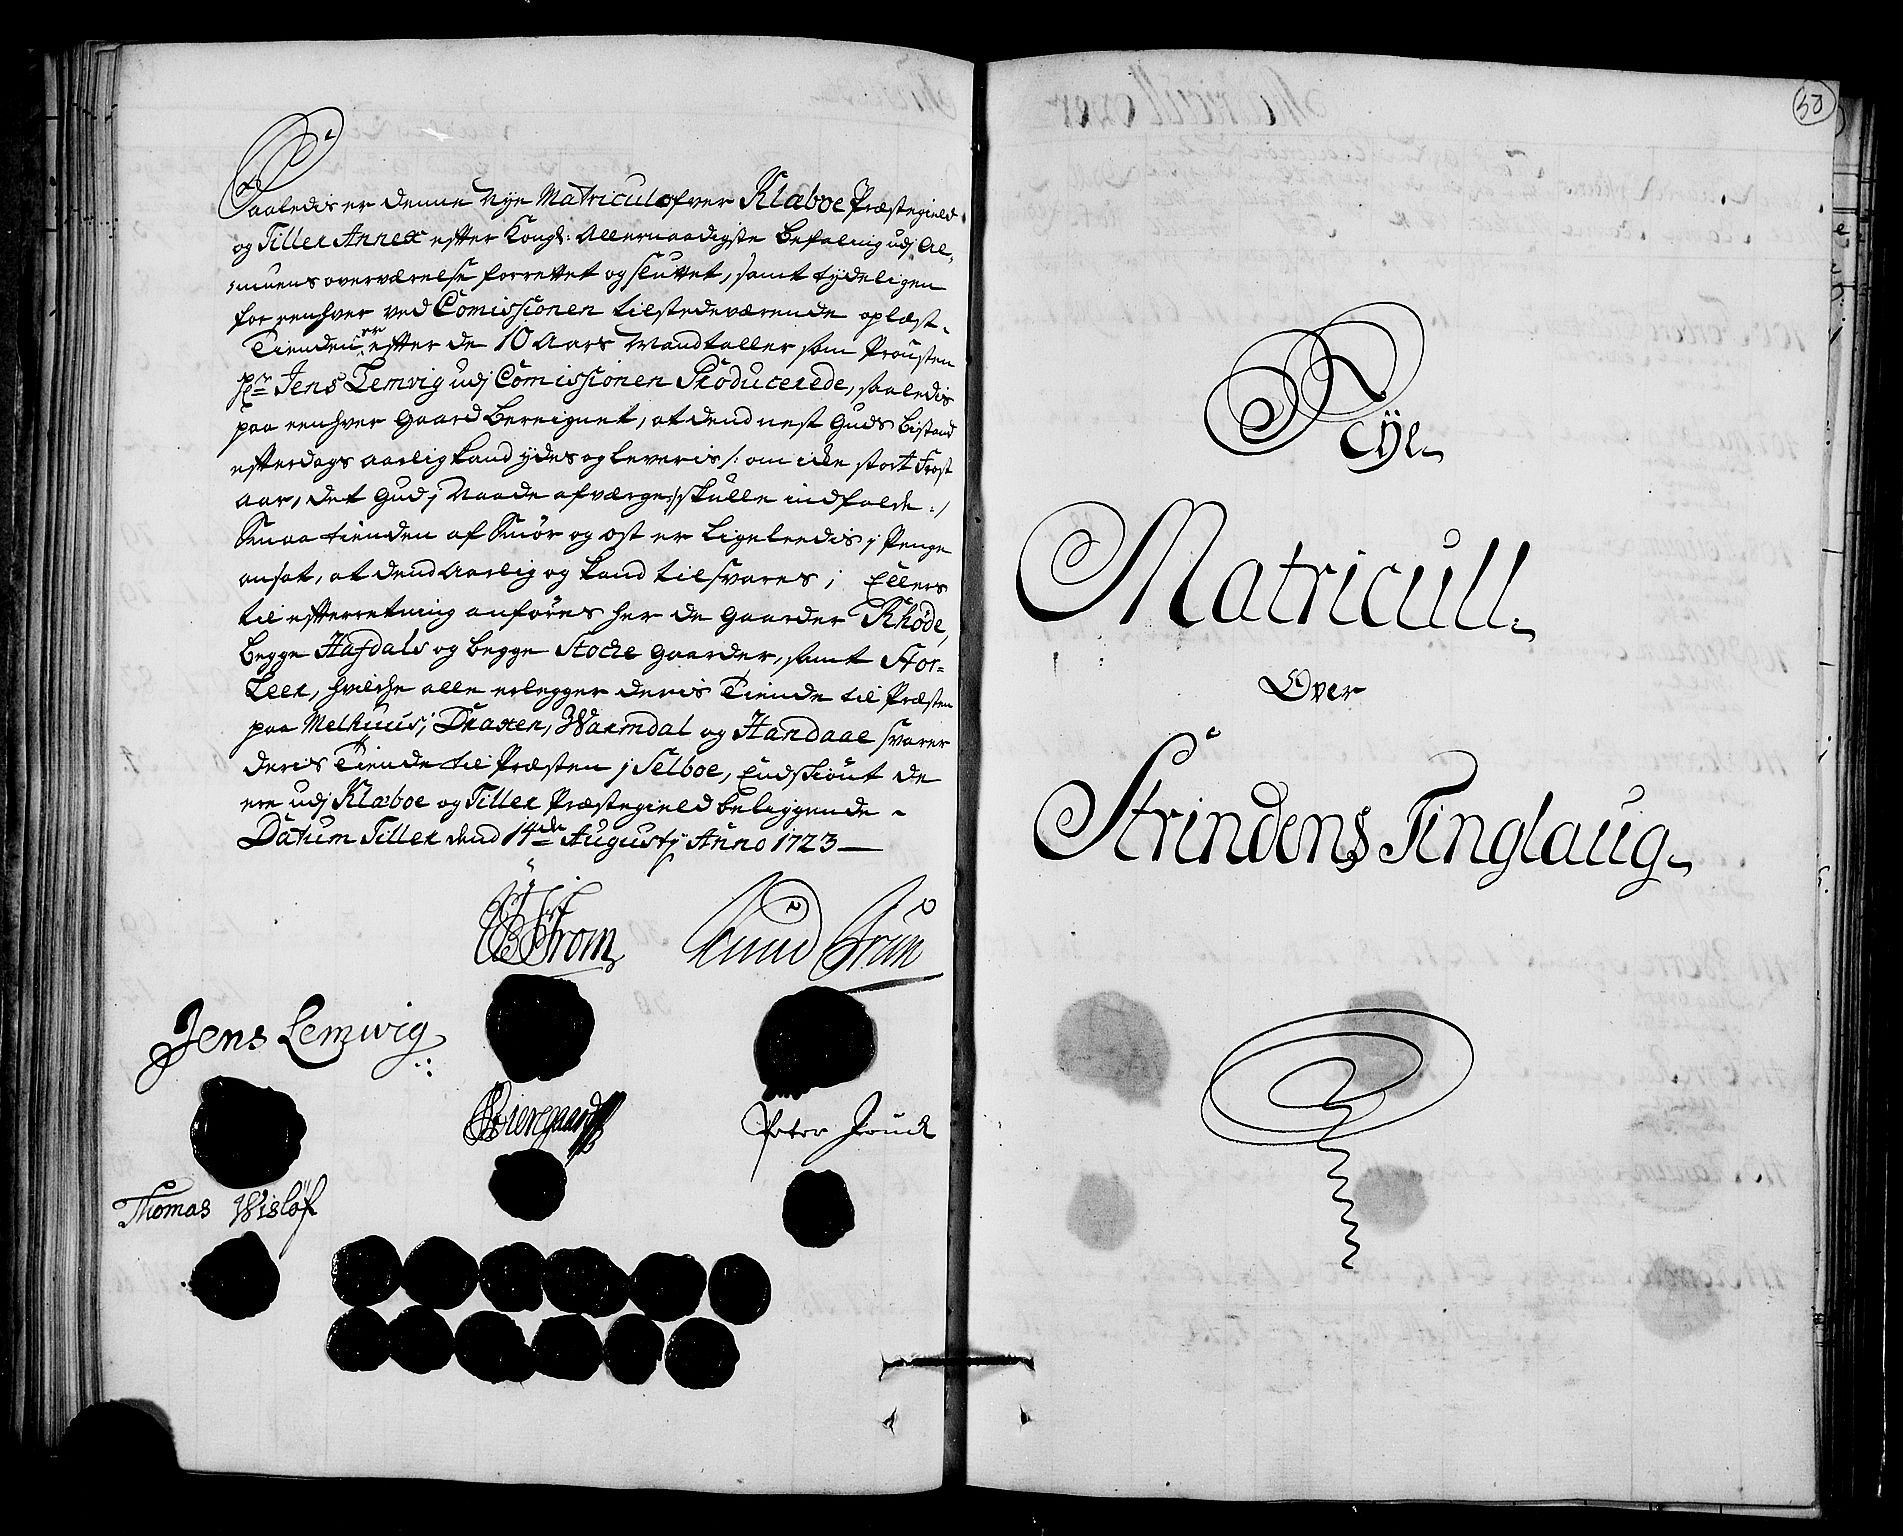 Saaledis er denne Nye Matricul ofver Klæboe Præstegield
og Tiller Annex efter Kongl: Allernaadigste Befaling udj Al,
muens overværelse forrettet og sluttet, samt tydeligen
for eenhver ved Comissionen tilstedeværende oplæst.
Tienden er efter de 10 Aars Mandtaller som Prousten
Hr Jens Lemvig udj Comissionen Producerede, saaledis
paa eenhver Gaard Bereignet, at dend nest Guds Bistand
efterdags aarlig kand ydes og leveris /: om icke stort Frost
aar, det Gud j Naade afværge, skulle indfalde :/
Smaa tienden af Smör og ost er Ligeleedis j Penge
ansat, at dend Aarlig og kand tilsvares; Ellers
til efterretning anföres her de Gaarder Rhöde,
Begge Hafdals og begge Stocke Gaarder, samt Stor-
Leer, hvilche alle erlegger deris Tiende til Præsten
paa Melhuus; Draxen, Warmdal og Handaae svarer
deris Tiende til Præsten j Selboe, Endskiönt de
ere udj Klæboe og Tiller Præstegield beliggende.
Datum Tiller dend 14de Augustj Anno 1723
Ström Knud Trun
Jens Lemwig
Peter
Thomas Wislöf
50
Nÿe
Matricull
Over
Strindens Tinglaug